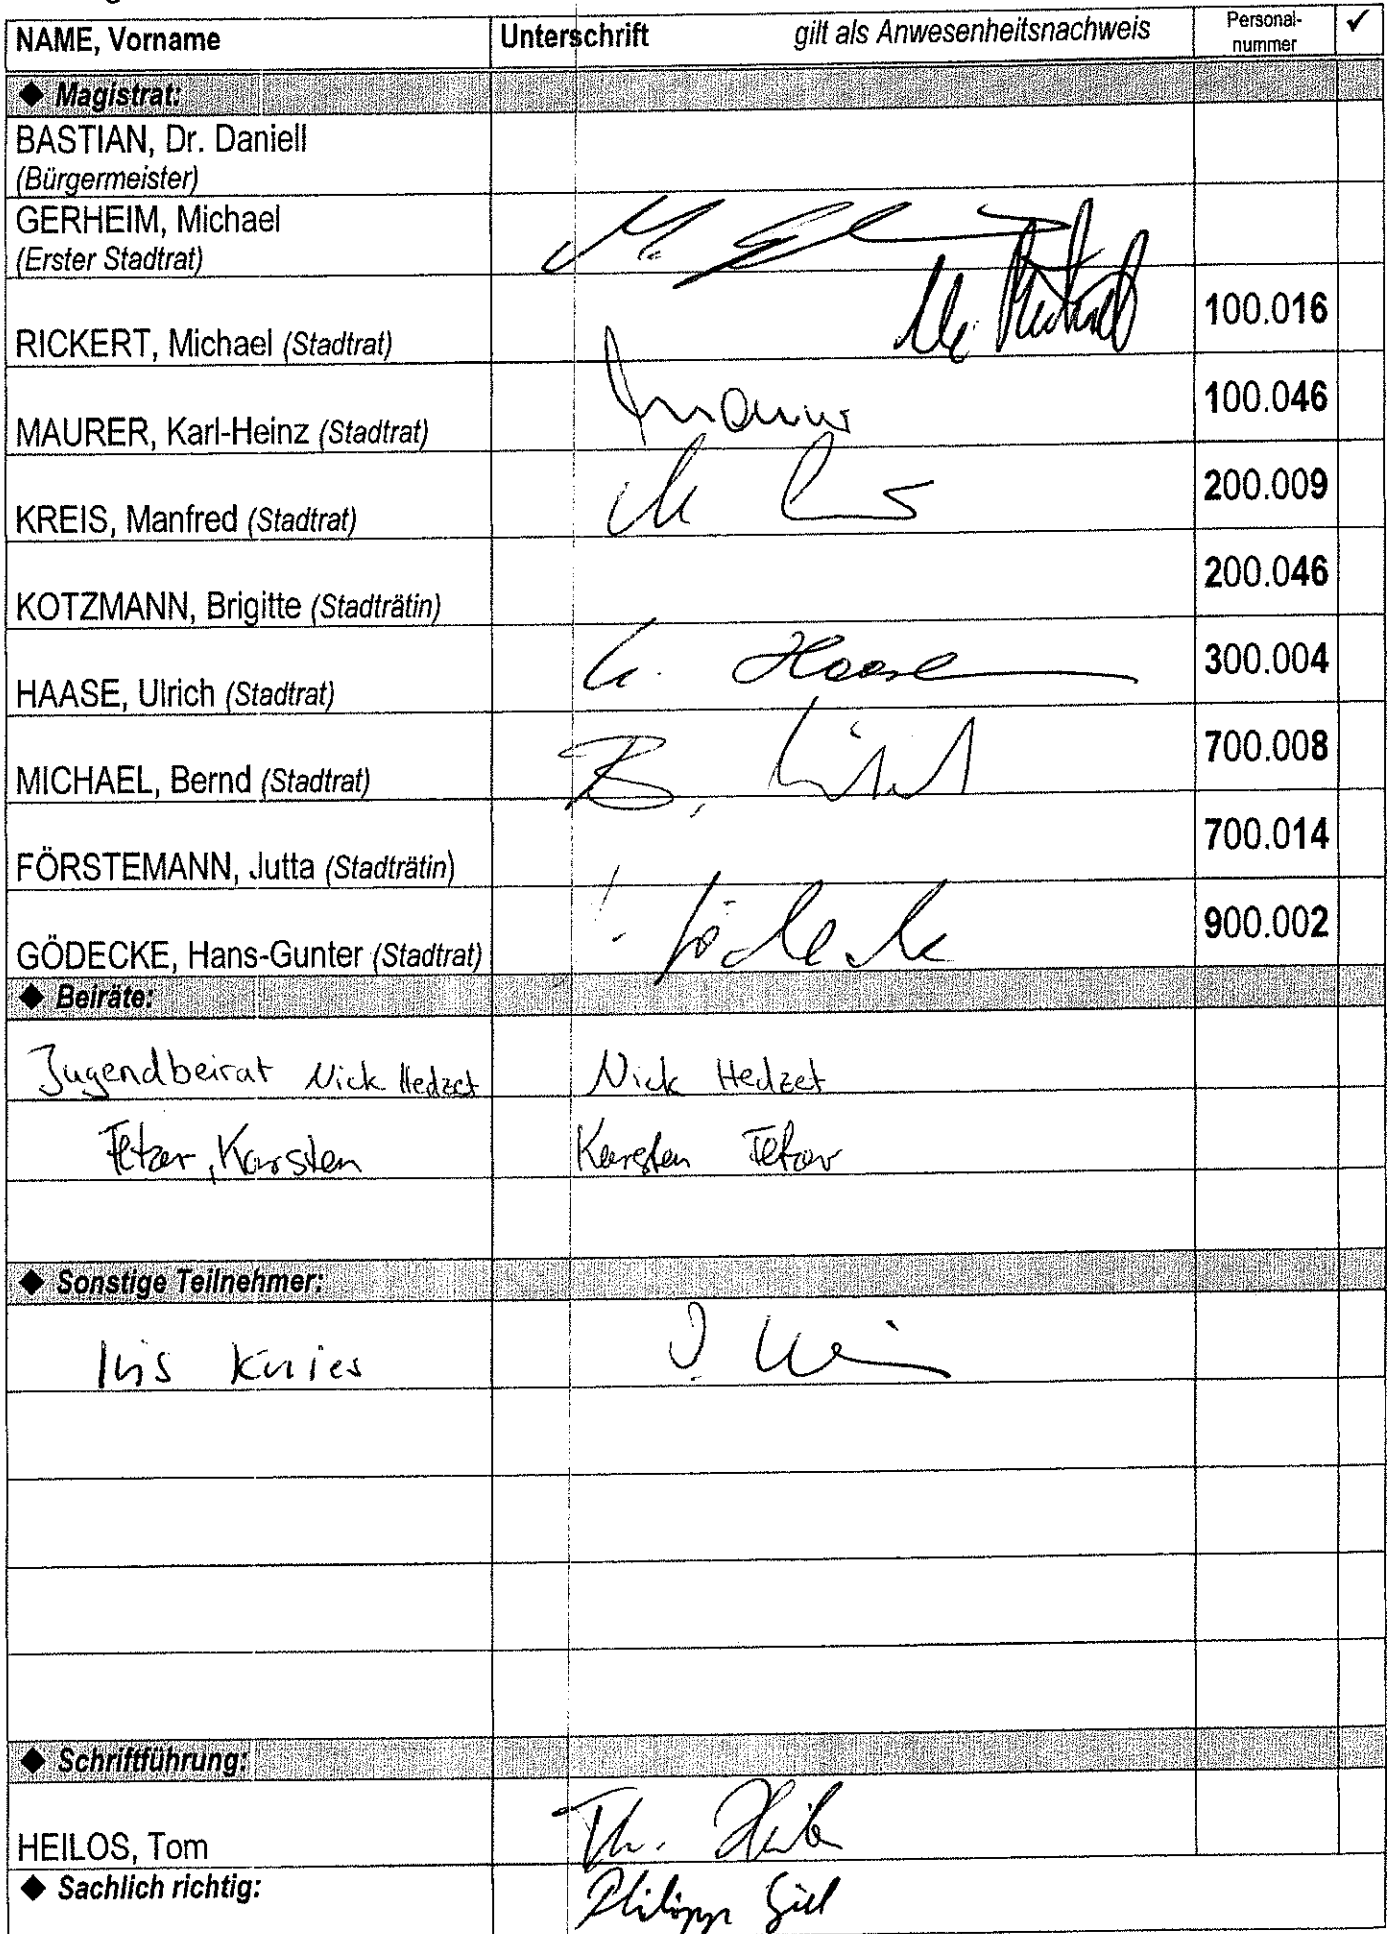 NAME, Vorname Unterschrift gilt als Anwesenheitsnachweis Personal-
nummer ✓
◆ Magistrat:
BASTIAN, Dr. Daniell
(Bürgermeister)
GERHEIM, Michael
(Erster Stadtrat)
RICKERT, Michael (Stadtrat) 100.016
MAURER, Karl-Heinz (Stadtrat) 100.046
KREIS, Manfred (Stadtrat) 200.009
KOTZMANN, Brigitte (Stadträtin) 200.046
HAASE, Ulrich (Stadtrat) U. Haase 300.004
MICHAEL, Bernd (Stadtrat) 700.008
FÖRSTEMANN, Jutta (Stadträtin) 700.014
GÖDECKE, Hans-Gunter (Stadtrat) Gödecke 900.002
◆ Beiräte:
Jugendbeirat Nick Hedzet Nick Hedzet
Fetzer, Karsten Karsten Fetzer
◆ Sonstige Teilnehmer:
Iris Knies
◆ Schriftführung:
HEILOS, Tom
◆ Sachlich richtig: Philipp Giel